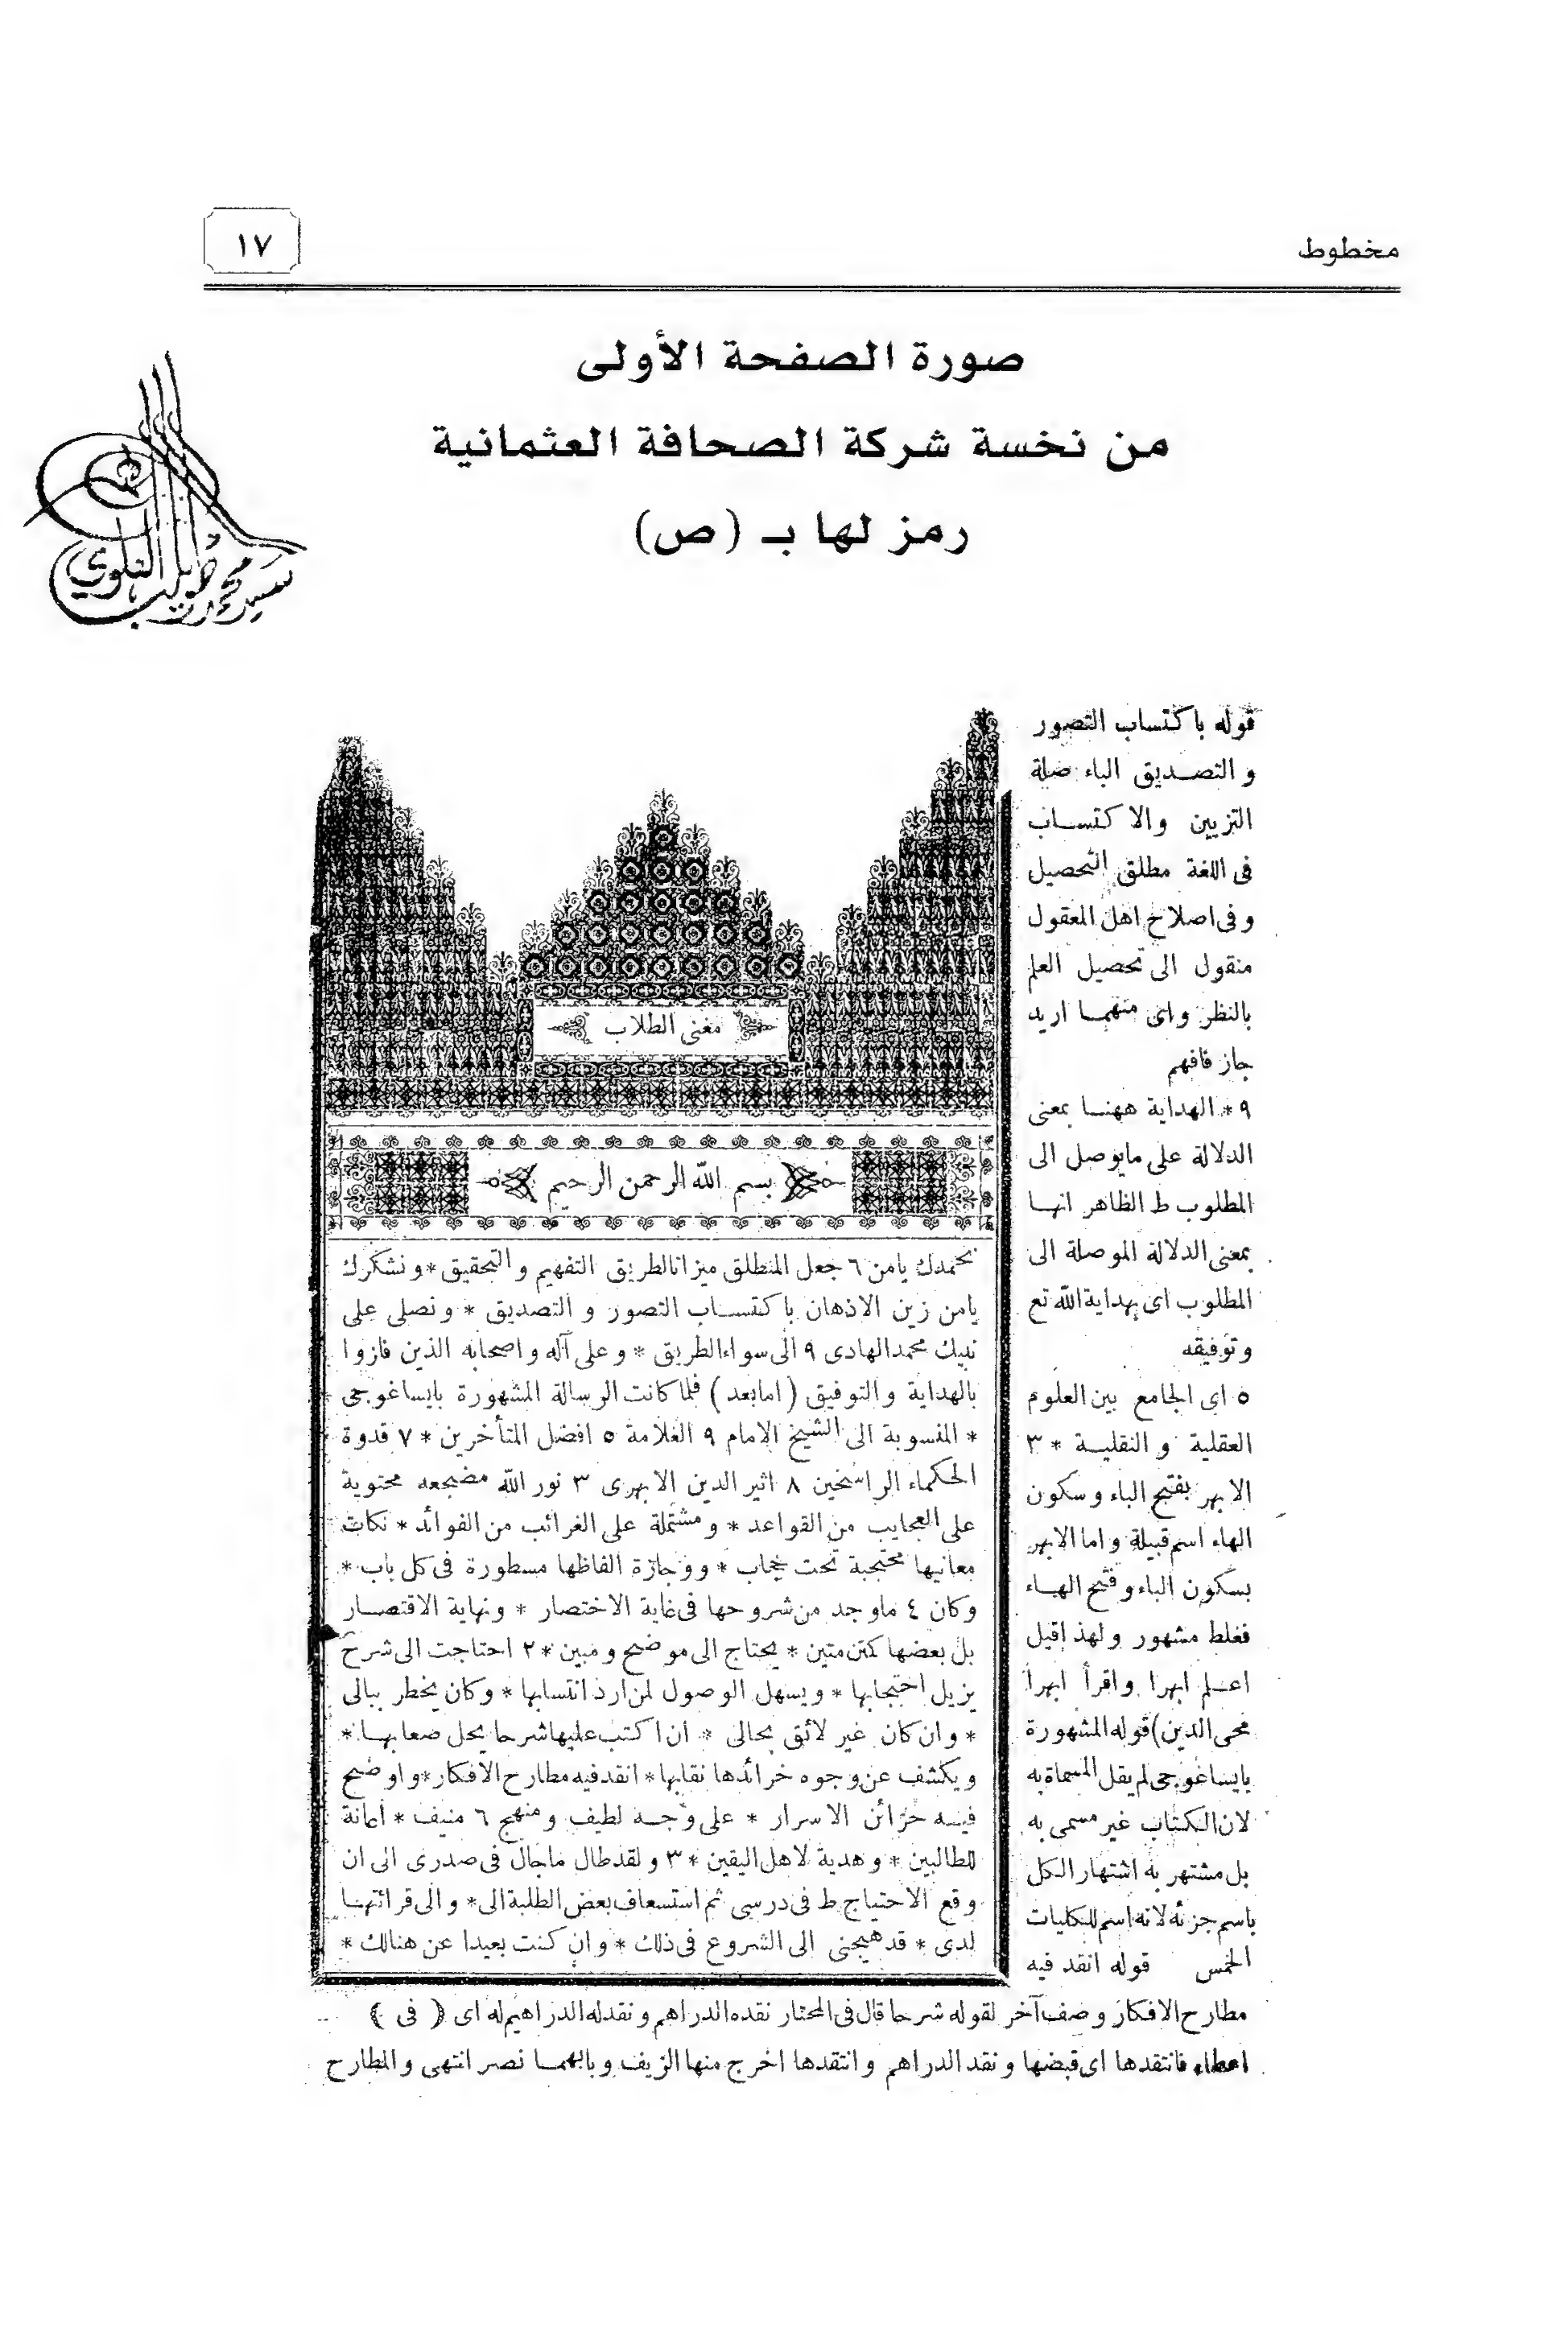 مخطوط
١٧
صورة الصفحة الأولى
من نخسة شركة الصحافة العثمانية
رمز لها بـ (ص)
مغنى الطلاب
بسم الله الرحمن الرحيم
نحمدك يامن ٦ جعل المنطلق ميزانالطريق التفهيم والتحقيق * ونشكرك
يامن زين الاذهان باكتساب التصور و التصديق * ونصلى على
نبيك محمدالهادى ٩ الى سواءالطريق * وعلى آله واصحابه الذين فازوا
بالهداية والتوفيق (امابعد) فلما كانت الرسالة المشهورة بايساغوجى
* المنسوبة الى الشيخ الامام ٩ العلامة ٥ افضل المتأخرين * ٧ قدوة
الحكماء الراسخين ٨ اثير الدين الابهرى ٣ نور الله مضجعه محتوية
على العجايب من القواعد * ومشتملة على الغرائب من الفوائد * نكات
معانيها محتجبة تحت حجاب * ووجازة الفاظها مسطورة فى كل باب *
وكان ٤ ماوجد من شروحها فى غاية الاختصار * ونهاية الاقتصار
بل بعضها كمتن متين * يحتاج الى موضح ومبين * ٢ احتاجت الى شرح
يزيل احتجابها * ويسهل الوصول لمن ارد انتسابها * وكان يخطر ببالى
* وان كان غير لائق بحالى * ان اكتب عليها شرحا يحل صعابها *
ويكشف عن وجوه خرائدها نقابها * انقدفيه مطارح الافكار * واوضح
فيه خزائن الاسرار * على وجه لطيف ومنهج ٦ منيف * اعانة
للطالبين * وهدية لاهل اليقين * ٣ ولقدطال ماجال فى صدرى الى ان
وقع الاحتياج ط فى درسى ثم استسعاف بعض الطلبة الى * والى قرائتها
لدى * قد هيجنى الى الشروع فى ذلك * وان كنت بعيدا عن هنالك *
قوله باكتساب التصور
و التصديق الباء صلة
التزيين والاكتساب
فى اللغة مطلق التحصيل
وفى اصلاح اهل المعقول
منقول الى تحصيل العلم
بالنظر واى منهما اريد
جاز فافهم
٩ * الهداية ههنا بمعنى
الدلالة على مايوصل الى
المطلوب ط الظاهر انها
بمعنى الدلالة الموصلة الى
المطلوب اى بهداية الله تع
وتوفيقه
٥ اى الجامع بين العلوم
العقلية و النقلية * ٣
الابهر بفتح الباء وسكون
الهاء اسم قبيلة واما الابهر
بسكون الباء وفتح الهاء
فغلط مشهور ولهذا قيل
اعلم ابهرا واقرأ ابهرا
محى الدين) قوله المشهورة
بايساغوجى لم يقل المسماة به
لان الكتاب غير مسمى به
بل مشتهر به اشتهار الكل
باسم جزئه لانه اسم للكليات
الخمس قوله انقد فيه
مطارح الافكار وصف آخر لقوله شرحا قال فى المختار نقده الدراهم ونقدله الدراهيم له اى ﴿ فى ﴾
اعطاه فانتقدها اى قبضها ونقد الدراهم وانتقدها اخرج منها الزيف وبابهما نصر انتهى والمطارح